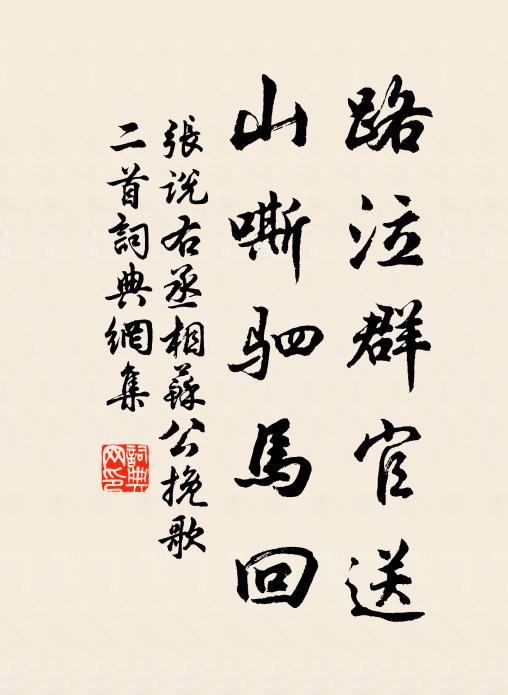 路泣群官送
山嘶驷馬回
張说右丞相蘇公挽歌
二首詞典網集
詞典
网印